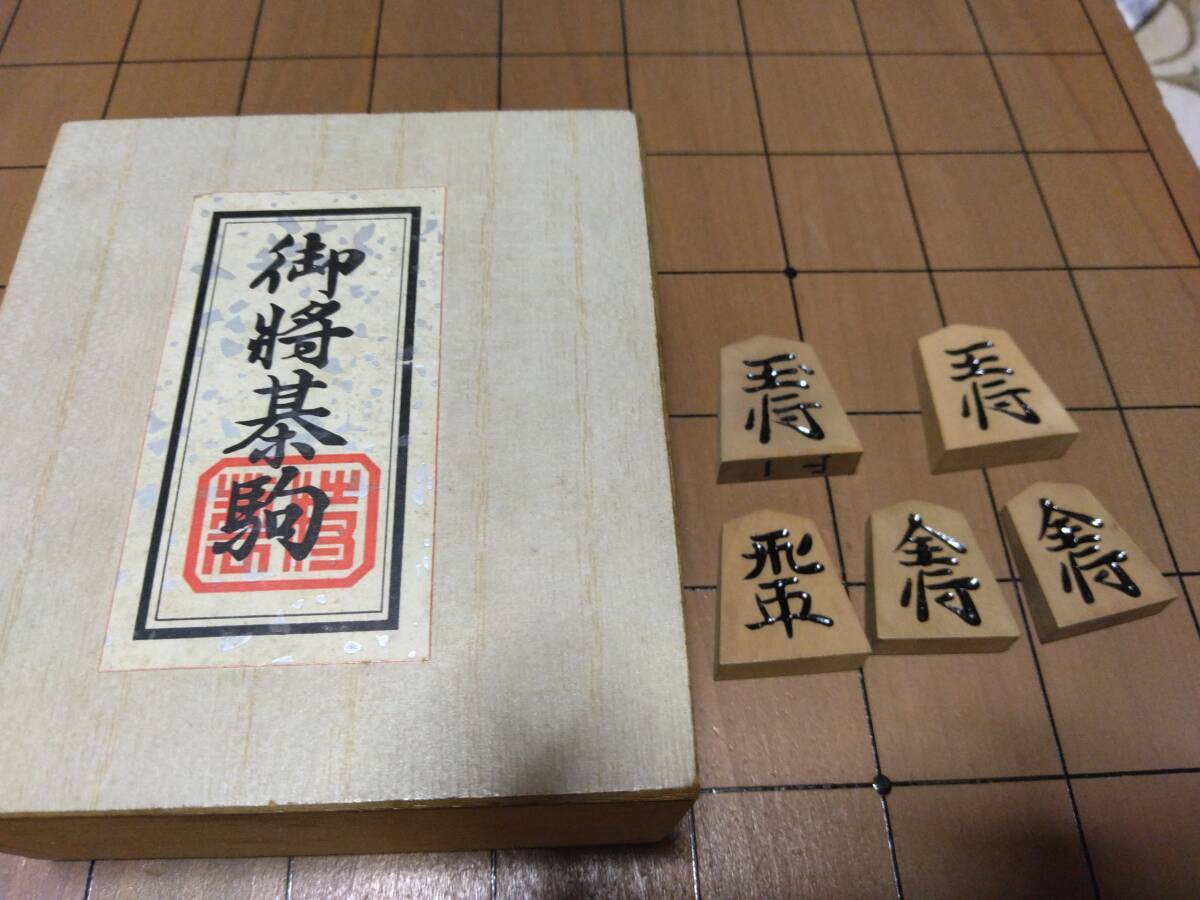 御將棊駒
玉将
王将
飛車
金将
金将